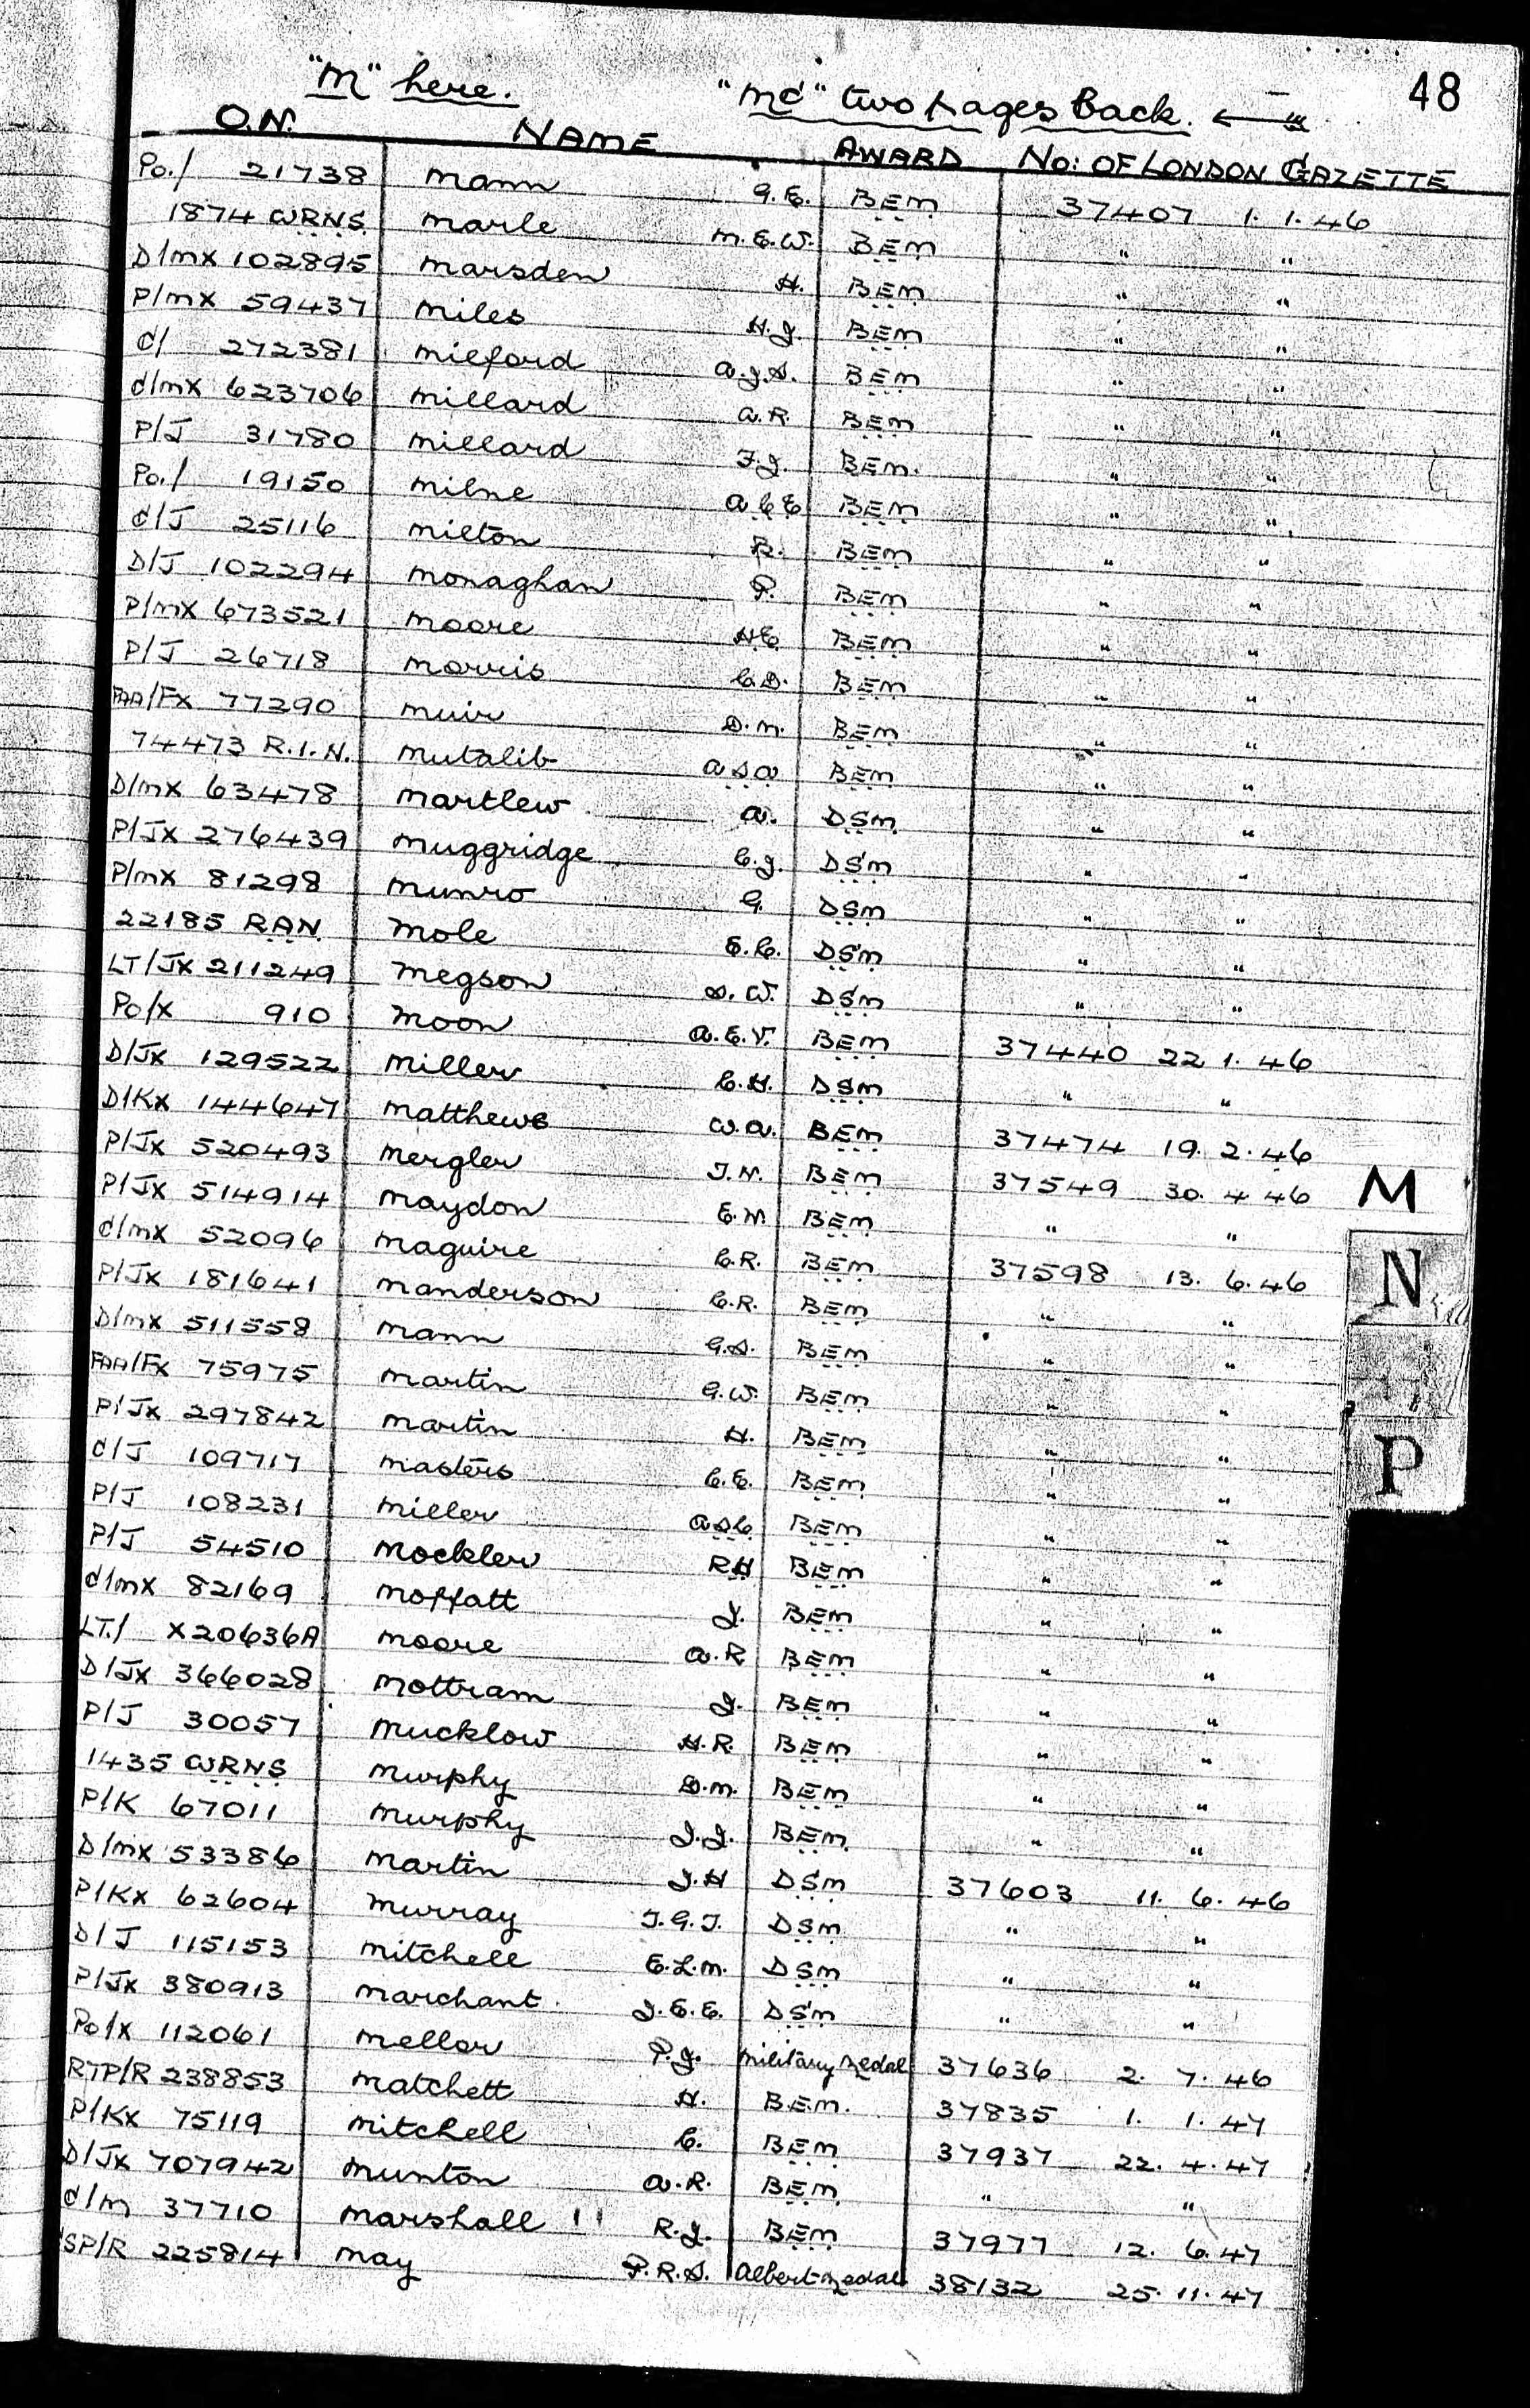 48
"M" here. "Mc" two pages Back. ←
O.N. NAME AWARD No: OF LONDON GAZETTE
Po./ 21738 Mann G.E. BEM 37407 1. 1. 46
1874 WRNS. Marle M.E.W. BEM " "
D/MX 102895 Marsden H. BEM " "
P/MX 59437 Miles H.J. BEM " "
C/ 272381 Milford A.J.S. BEM " "
C/MX 623706 Millard A.R. BEM " "
P/J 31780 Millard F.J. BEM. " "
Po./ 19150 Milne A.C.E BEM " "
C/J 25116 Milton R. BEM " "
D/J 102294 Monaghan P. BEM " "
P/MX 673521 Moore H.C BEM " "
P/J 26718 Morris C.D. BEM " "
FAA/FX 77290 Muir D.M. BEM " "
74473 R.I.N. Mutalib A S A BEM " "
D/MX 63478 Martlew A. DSM " "
P/JX 276439 Muggridge C.J. DSM " "
P/MX 81298 Munro G. DSM " "
22185 RAN. Mole E.C. DSM " "
LT/JX 211249 Megson S.W. DSM " "
Po/X 910 Moon A.E.V. BEM 37440 22 1. 46
D/JX 129522 Miller C.H. DSM " "
D/KX 144647 Matthews W.A. BEM 37474 19. 2. 46
P/JX 520493 Mergler T.N. BEM 37549 30. 4 46
M
P/JX 514914 Maydon E.M BEM " "
C/MX 52096 Maguire C.R. BEM 37598 13. 6. 46
N
P/JX 181641 Manderson C.R. BEM " "
D/MX 511558 Mann G.S. BEM " "
FAA/FX 75975 Martin G.W. BEM " "
P/JX 297842 Martin H. BEM " "
P
C/J 109717 Masters C.E. BEM " "
P/J 108231 Miller A S C BEM " "
P/J 54510 Mockler RH BEM " "
C/MX 82169 Moffatt J. BEM " "
LT./ X20636A Moore A.R BEM " "
D/JX 366028 Mottram J. BEM " "
P/J 30057 Mucklow H.R. BEM " "
1435 WRNS Murphy D.M. BEM " "
P/K 67011 Murphy J.J. BEM. " "
D/MX 53386 Martin J.H DSM 37603 11. 6. 46
P/KX 62604 Murray T.G.T. DSM " "
D/J 115153 Mitchell E.L.M. DSM " "
P/JX 380913 Marchant. J.E.E. DSM " "
Po/X 112061 Mellor P.J. Military Medal 37636 2. 7. 46
RTP/R 238853 Matchett H. B.E.M. 37835 1. 1. 47
P/KX 75119 Mitchell C. BEM 37937 22. 4. 47
D/JX 707942 Munton A.R. BEM. " "
C/M 37710 Marshall R.J. BEM 37977 12. 6. 47
SP/R 225814 May P.R.S. Albert Medal 38132 25. 11. 47